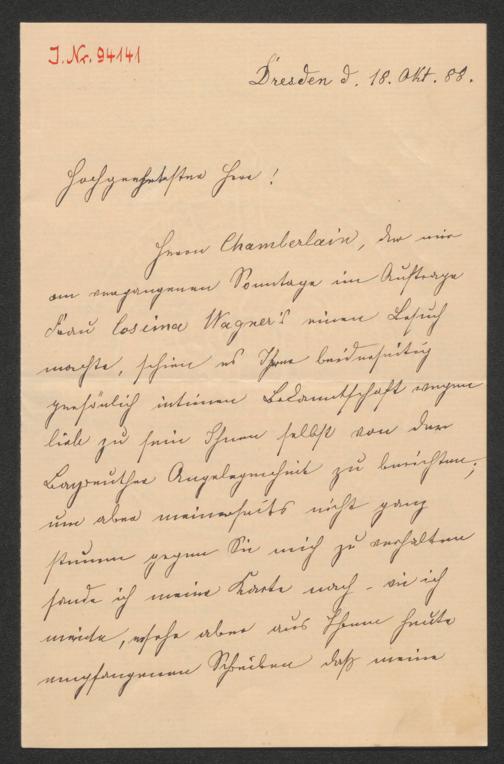 J. Nr. 94141
Dresden d. 18. Okt. 88.
Hochgeehrtester Herr!
Herrn Chamberlain, der mir
am vergangenen Sonntage im Auftrage
Frau Cosima Wagner's einen Besuch
machte, schien es Ihrer beiderseitig
persönlich intimen Bekanntschaft wegen
lieb zu sein Ihnen selbst von der
Bayreuther Angelegenheit zu berichten;
um aber meinerseits nicht ganz
stumm gegen Sie mich zu verhalten
sande ich meine Karte nach – wie ich
meinte, ersehe aber aus Ihrem heute
empfangenen Schreiben daß meine